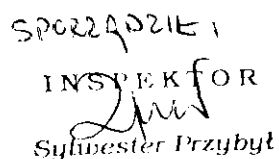 SPORZĄDZIŁ,
INSPEKTOR
Sylwester Przybył